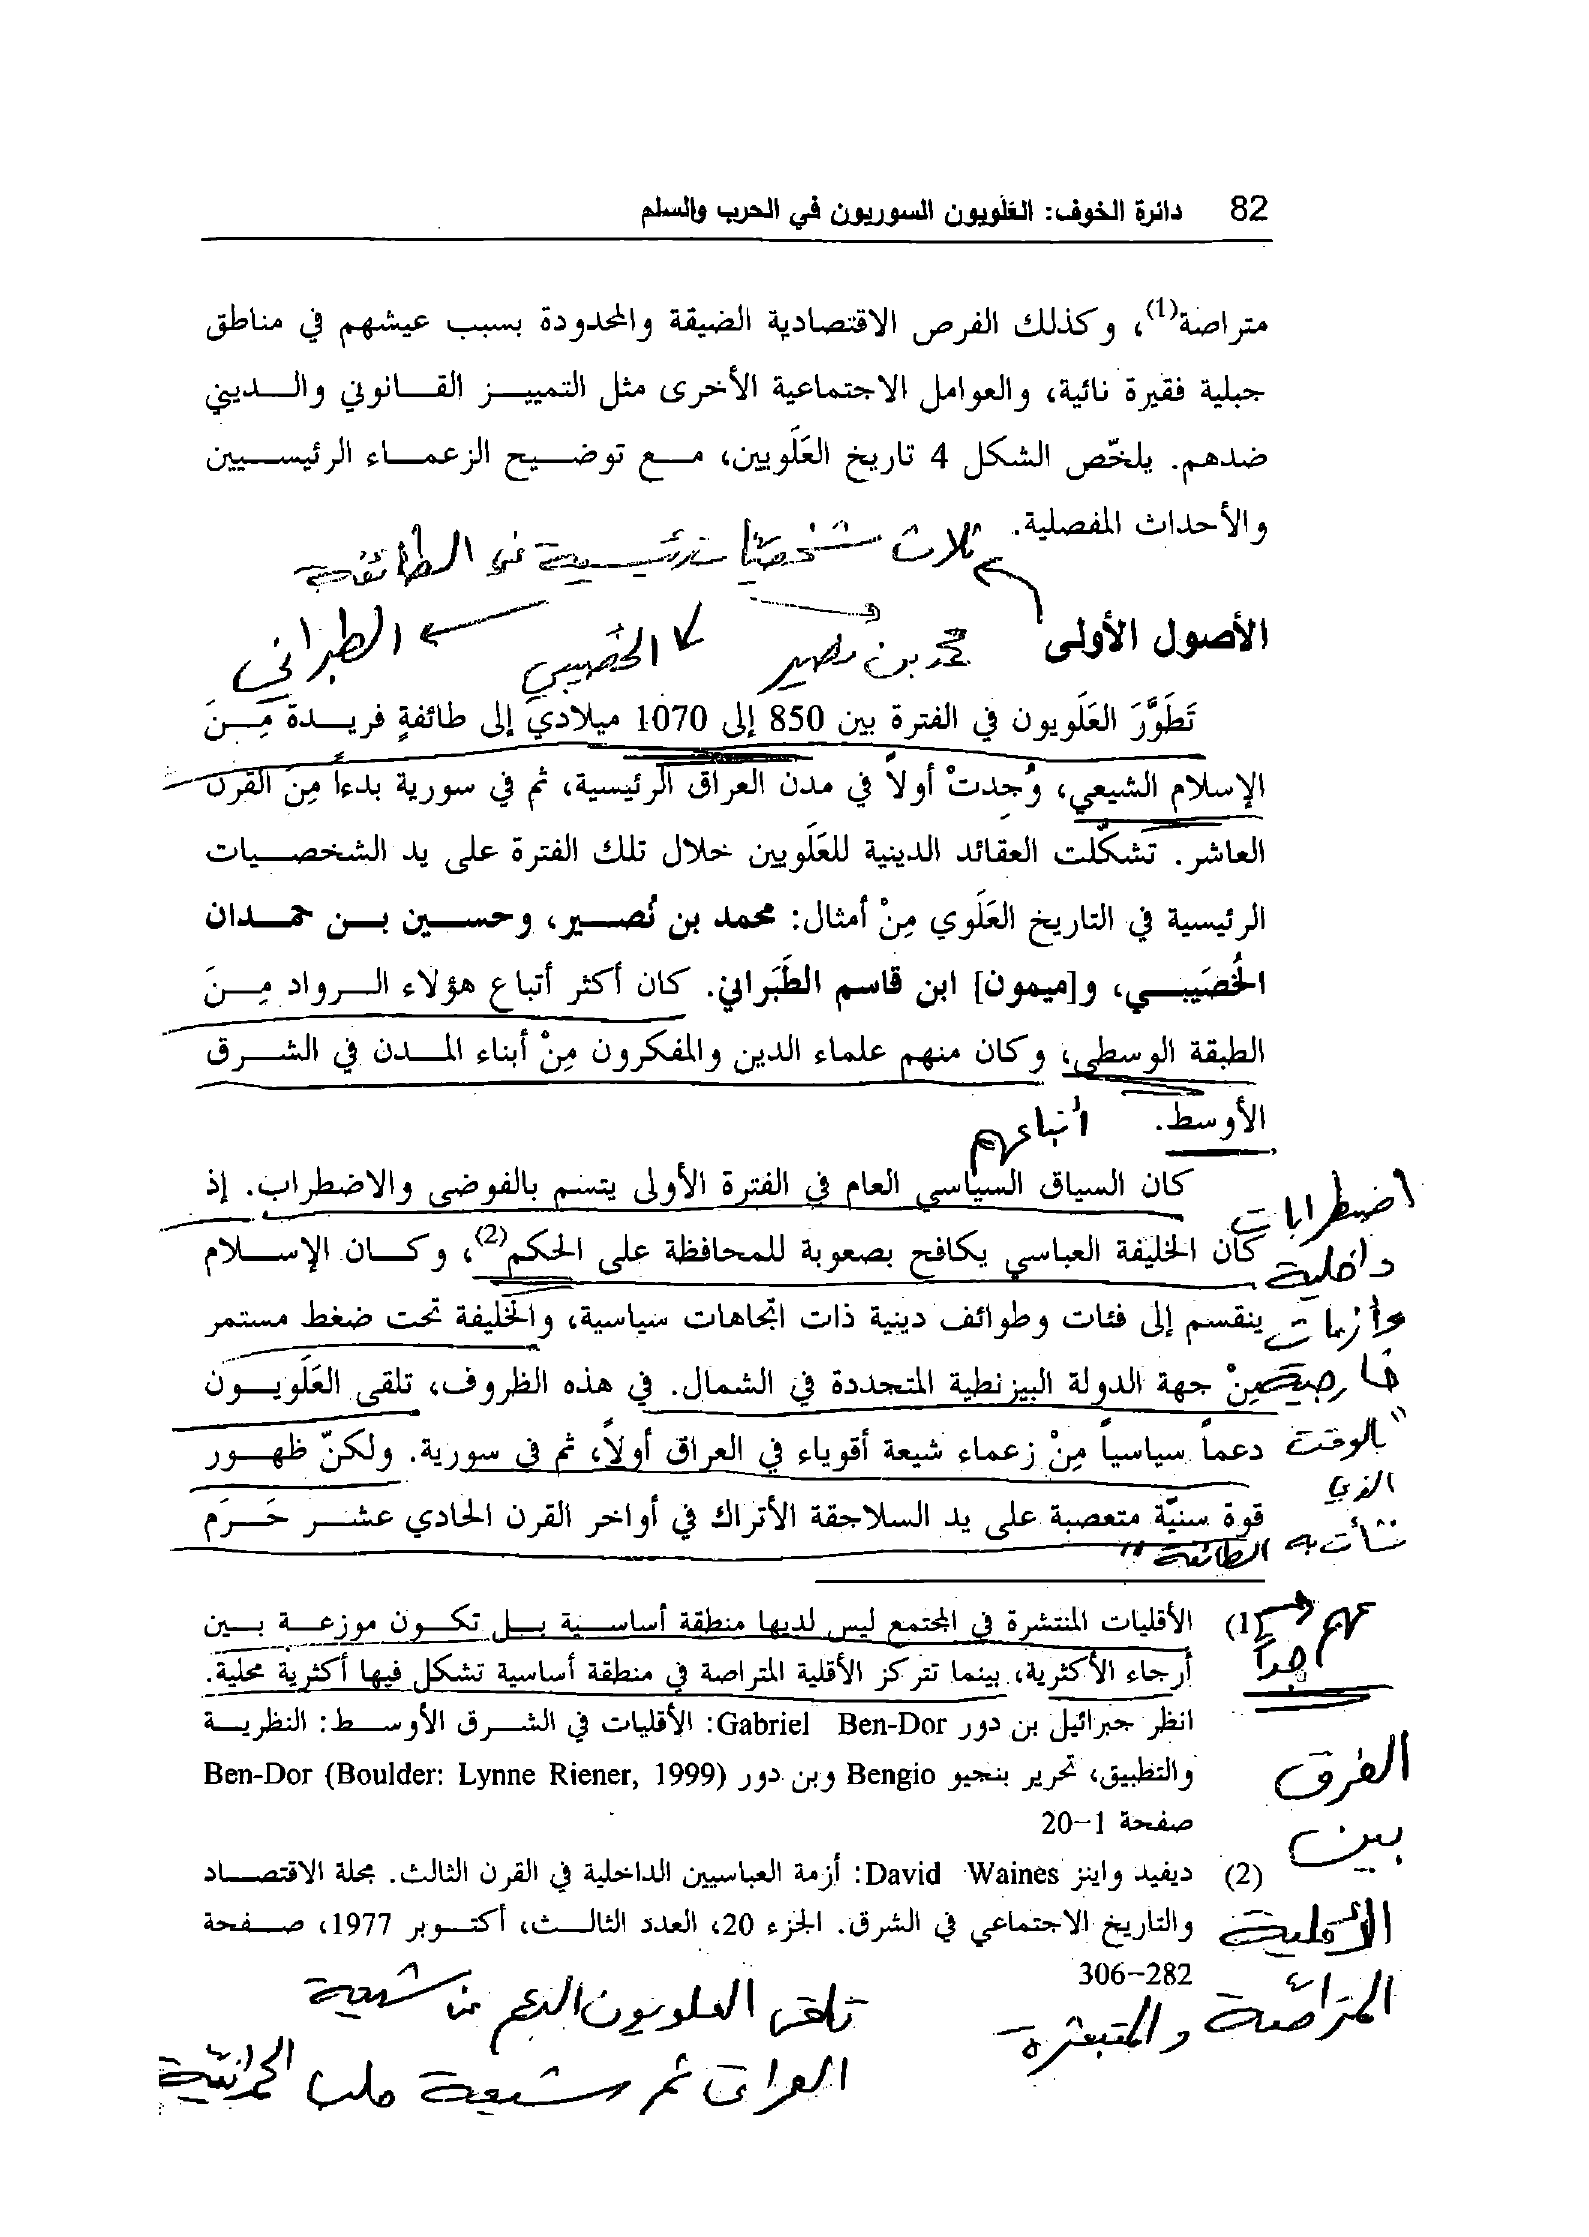 82 دائرة الخوف: العَلَويون السوريون في الحرب والسلم
متراصة(1)، وكذلك الفرص الاقتصادية الضيقة والمحدودة بسبب عيشهم في مناطق
جبلية فقيرة نائية، والعوامل الاجتماعية الأخرى مثل التمييز القانوني والديني
ضدهم. يلخّص الشكل 4 تاريخ العَلَويين، مع توضيح الزعماء الرئيسيين
والأحداث المفصلية.
ثلاث شخصيات رئيسية في الطائفة
الأصول الأولى
محمد بن نصير الخصيبي الطبراني
تَطَوَّرَ العَلَويون في الفترة بين 850 إلى 1070 ميلادي إلى طائفةٍ فريدة مِنَ
الإسلام الشيعي، وُجِدتْ أولاً في مدن العراق الرئيسية، ثم في سورية بدءاً مِنَ القرن
العاشر. تشكّلت العقائد الدينية للعَلَويين خلال تلك الفترة على يد الشخصيات
الرئيسية في التاريخ العَلَوي مِنْ أمثال: محمد بن نُصير، وحسين بن حمدان
الخُصَيبي، و[ميمون] ابن قاسم الطَبَراني. كان أكثر أتباع هؤلاء الرواد مِنَ
الطبقة الوسطى، وكان منهم علماء الدين والمفكرون مِنْ أبناء المدن في الشرق
الأوسط.
أتباعهم
كان السياق السياسي العام في الفترة الأولى يتسم بالفوضى والاضطراب. إذ
كان الخليفة العباسي يكافح بصعوبة للمحافظة على الحكم(2)، وكان الإسلام
ينقسم إلى فئات وطوائف دينية ذات اتجاهات سياسية، والخليفة تحت ضغط مستمر
مِنْ جهة الدولة البيزنطية المتجددة في الشمال. في هذه الظروف، تلقى العَلَويون
دعماً سياسياً مِنْ زعماء شيعة أقوياء في العراق أولاً، ثم في سورية. ولكنّ ظهور
قوة سنيّة متعصبة على يد السلاجقة الأتراك في أواخر القرن الحادي عشر حَرَم
اضطرابات
داخلية
وأزمات
خارجية
"بالوقت
الذي
نشأت به
الطائفة"
(1) الأقليات المنتشرة في المجتمع ليس لديها منطقة أساسية بل تكون موزعة بين
أرجاء الأكثرية، بينما تتركز الأقلية المتراصة في منطقة أساسية تشكل فيها أكثرية محلية.
انظر جبرائيل بن دور Gabriel Ben-Dor: الأقليات في الشرق الأوسط: النظرية
والتطبيق، تحرير بنجيو Bengio وبن دور Ben-Dor (Boulder: Lynne Riener, 1999)
صفحة 1–20
(2) ديفيد واينز David Waines: أزمة العباسيين الداخلية في القرن الثالث. مجلة الاقتصاد
والتاريخ الاجتماعي في الشرق. الجزء 20، العدد الثالث، أكتوبر 1977، صفحة
282–306
مهم
جداً
الفرق
بين
الأقلية
المتراصة
والمتبعثرة
تلقى العلويون الدعم من شيعة
العراق ثم شيعة حلب الحمدانية